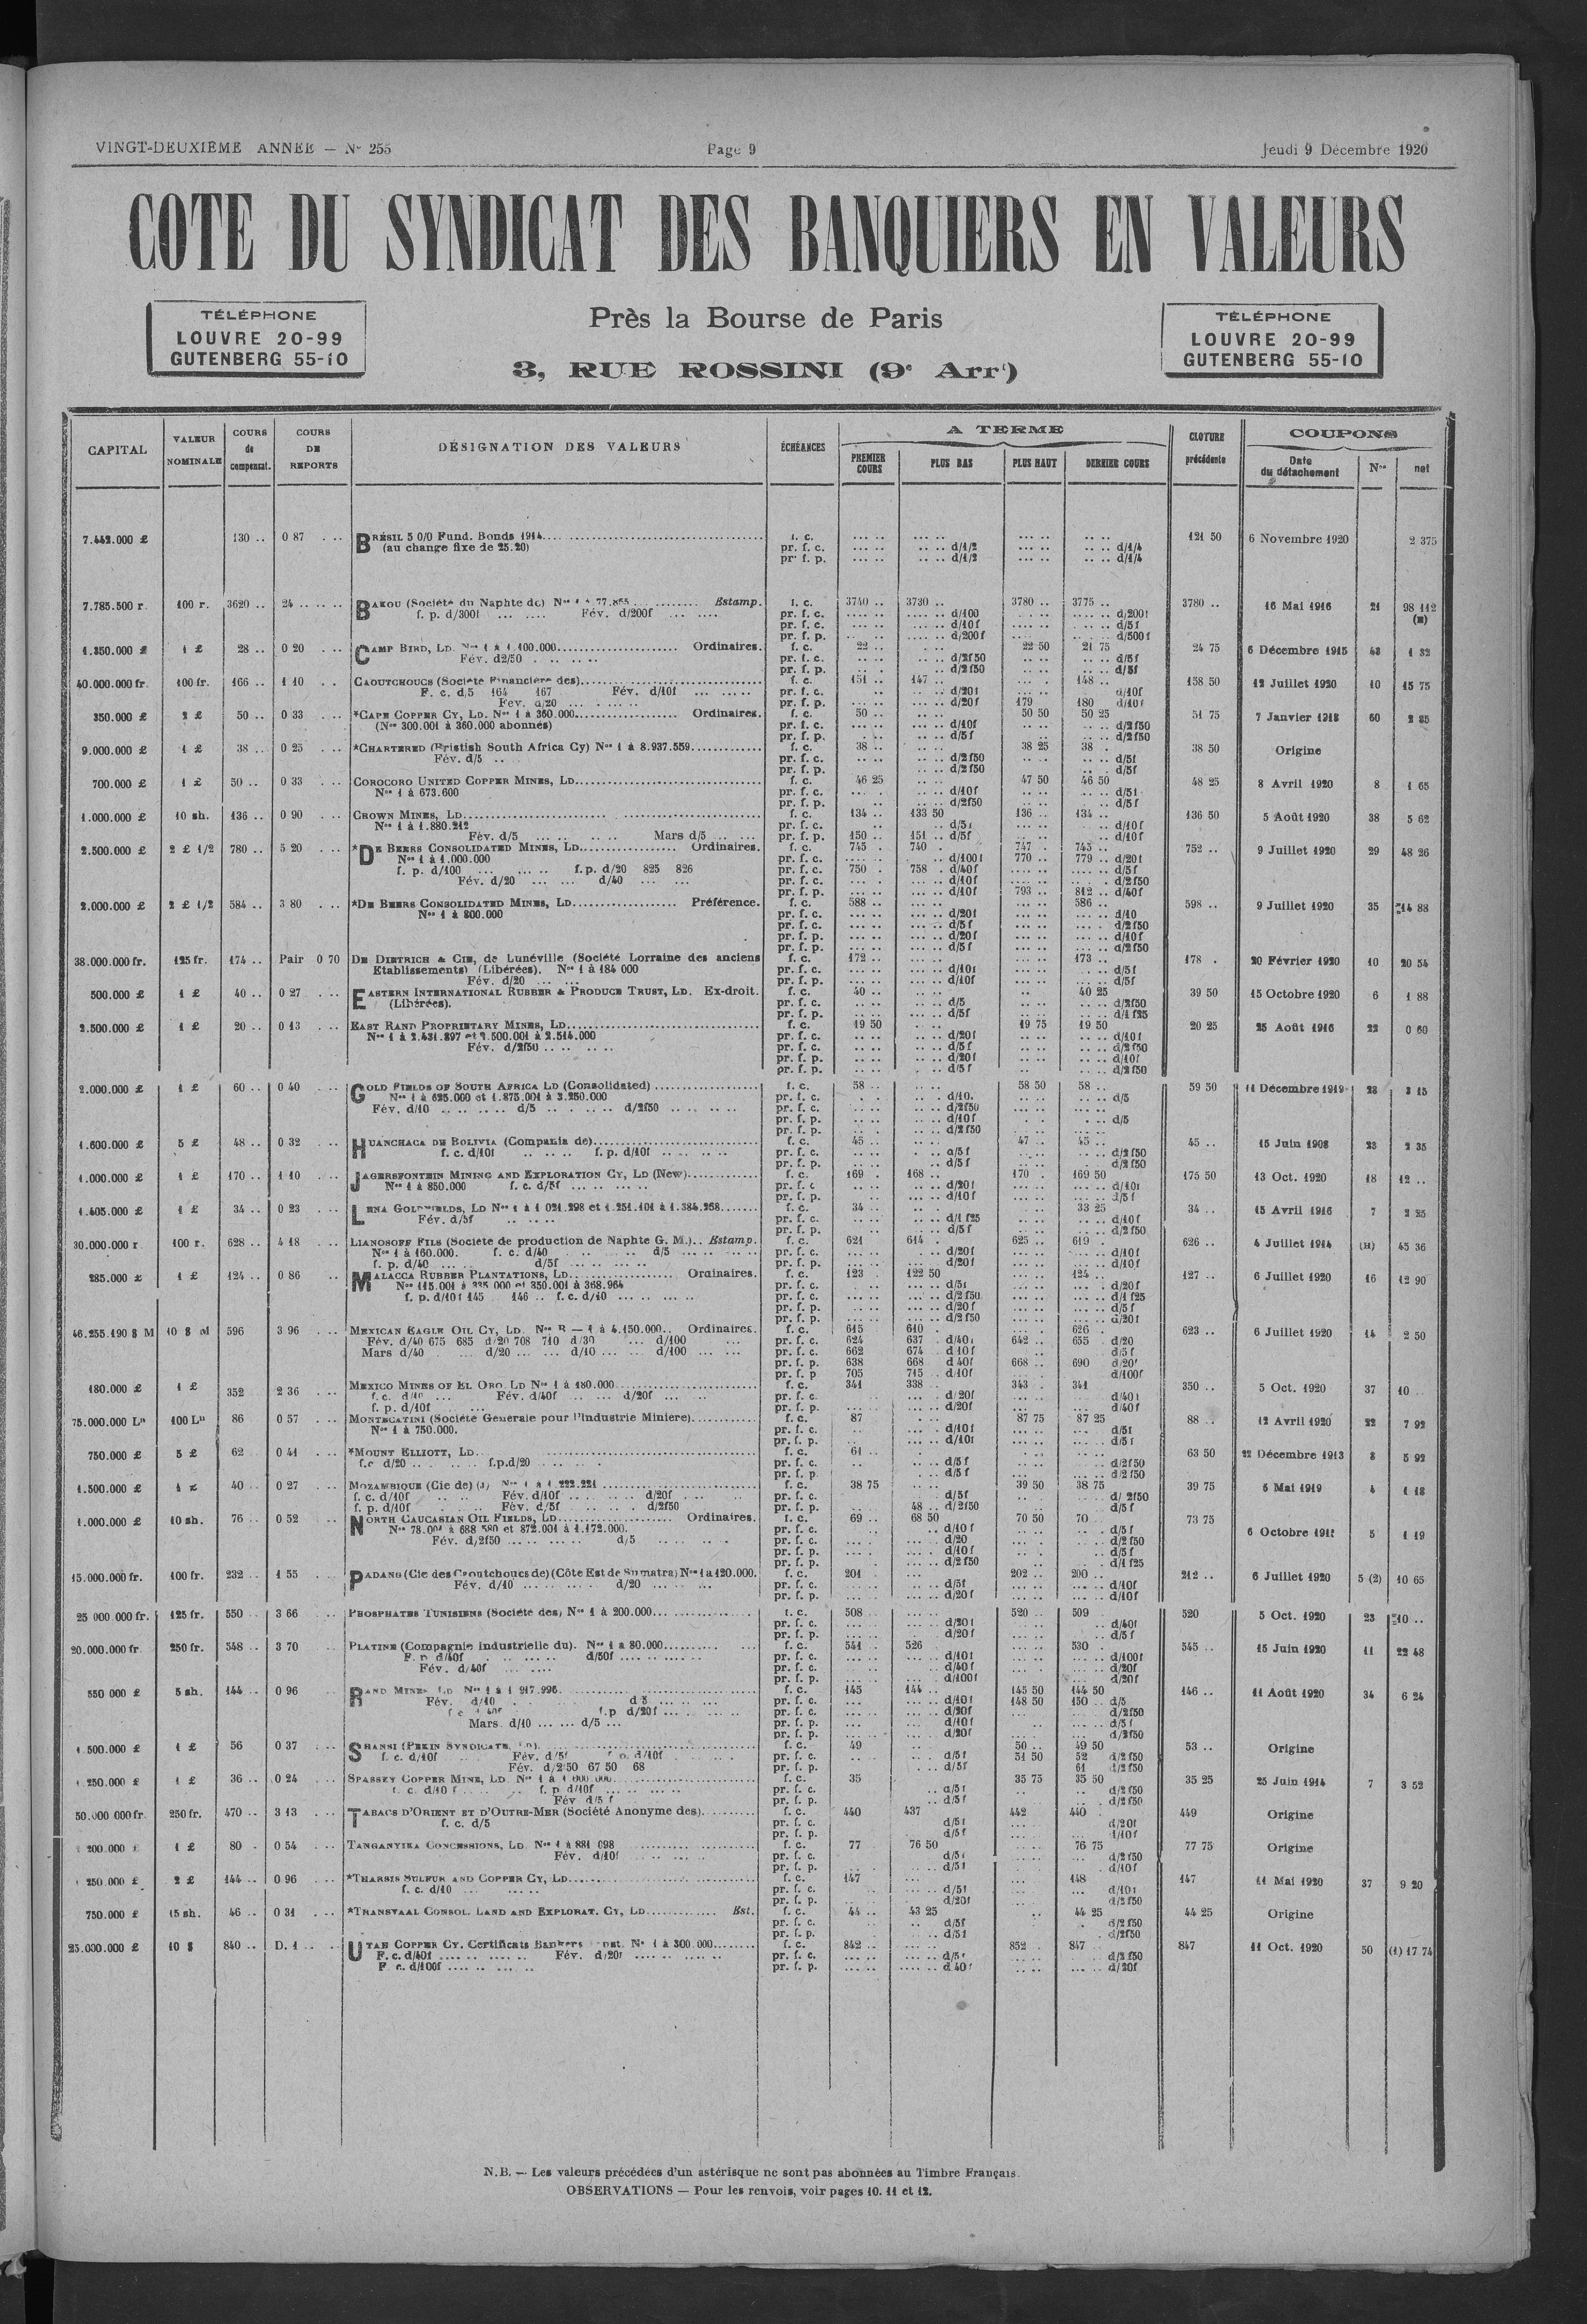 VINGT-DEUXIÈME ANNÉE — N° 255
Page 9
Jeudi 9 Décembre 1920
COTE DU SYNDICAT DES BANQUIERS EN VALEURS
TÉLÉPHONE
LOUVRE 20-99
GUTENBERG 55-10
Près la Bourse de Paris
3, RUE ROSSINI (9e Arrt)
TÉLÉPHONE
LOUVRE 20-99
GUTENBERG 55-10
CAPITAL VALEUR NOMINALE COURS de compensat. COURS DE REPORTS DÉSIGNATION DES VALEURS ÉCHÉANCES A TERME PREMIER COURS PLUS BAS PLUS HAUT DERNIER COURS CLOTURE précédente COUPONS Date du détachement Nos net
7.442.000 £ 130 .. 0 87 BRÉSIL 5 0/0 Fund. Bonds 1914 f. c. 121 50 6 Novembre 1920 2 375
(au change fixe de 25.20) pr. f. c. d/1/2 d/1/4
pr. f. p. d/1/2 d/1/4
7.785.500 r. 100 r. 3620 .. 24 .. BAKOU (Société du Naphte de) Estamp. f. c. 3740 .. 3730 .. 3780 .. 3775 .. 3780 .. 16 Mai 1916 21 98 112
f. p. d/300f Fév. d/200f pr. f. c. d/100 d/200f
pr. f. c. d/10f d/5f
pr. f. p. d/200f d/500f
1.350.000 £ 1 £ 28 .. 0 20 CAMP BIRD, LD. Ordinaires. f. c. 22 .. 22 50 21 75 24 75 6 Décembre 1915 43 1 32
Fév. d2/50 pr. f. c. d/2f50 d/5f
pr. f. p. d/2f50 d/5f
40.000.000 fr. 100 fr. 166 .. 1 10 CAOUTCHOUCS (Société Financière des) f. c. 151 .. 147 .. 148 .. 158 50 12 Juillet 1920 10 15 75
F. c. d/5 164 167 Fév. d/10f pr. f. c. d/20f d/10f
Fév. d/20 pr. f. p. d/20f 179 180 d/10f
350.000 £ 2 £ 50 .. 0 33 *CAPE COPPER CY, LD. Nos 1 à 360.000 Ordinaires. f. c. 50 .. 50 50 50 25 51 75 7 Janvier 1918 60 2 85
(Nos 300.001 à 360.000 abonnés) pr. f. c. d/10f d/2f50
pr. f. p. d/5f d/2f50
9.000.000 £ 1 £ 38 .. 0 25 *CHARTERED (Bristish South Africa Cy) Nos 1 à 8.937.559 f. c. 38 .. 38 25 38 . 38 50 Origine
Fév. d/5 pr. f. c. d/2f50 d/5f
pr. f. p. d/2f50 d/5f
700.000 £ 1 £ 50 .. 0 33 COROCORO UNITED COPPER MINES, LD f. c. 46 25 47 50 46 50 48 25 8 Avril 1920 8 1 65
Nos 1 à 673.600 pr. f. c. d/10f d/5f
pr. f. p. d/2f50 d/5f
1.000.000 £ 10 sh. 136 .. 0 90 CROWN MINES, LD f. c. 134 .. 133 50 136 .. 134 .. 136 50 5 Août 1920 38 5 62
Nos 1 à 1.880.212 pr. f. c. d/5f d/10f
Fév. d/5 Mars d/5 pr. f. p. 150 .. 151 .. d/5f d/10f
2.500.000 £ 2 £ 1/2 780 .. 5 20 *DE BEERS CONSOLIDATED MINES, LD Ordinaires. f. c. 745 . 740 . 747 . 745 .. 752 .. 9 Juillet 1920 29 48 26
Nos 1 à 1.000.000 pr. f. c. d/100f 770 .. 779 .. d/20f
f. p. d/100 f.p. d/20 825 826 pr. f. c. 750 . 758 . d/40f d/5f
Fév. d/20 d/40 pr. f. c. d/10f d/2f50
pr. f. p. d/10f 793 .. 812 .. d/40f
2.000.000 £ 2 £ 1/2 584 .. 3 80 *DE BEERS CONSOLIDATED MINES, LD Préférence. f. c. 588 .. 586 .. 598 .. 9 Juillet 1920 35 14 88
Nos 1 à 800.000 pr. f. c. d/20f d/10
pr. f. c. d/5f d/2f50
pr. f. p. d/20f d/10f
pr. f. p. d/5f d/2f50
38.000.000 fr. 125 fr. 174 .. Pair 0 70 DE DIETRICH & CIE, de Lunéville (Société Lorraine des anciens f. c. 172 .. 173 .. 178 . 20 Février 1920 10 20 54
Etablissements) (Libérées). Nos 1 à 184 000 pr. f. c. d/10f d/5f
Fév. d/20 pr. f. p. d/10f d/5f
500.000 £ 1 £ 40 .. 0 27 EASTERN INTERNATIONAL RUBBER & PRODUCE TRUST, LD. Ex-droit. f. c. 40 .. 40 25 39 50 15 Octobre 1920 6 1 88
(Libérées). pr. f. c. d/5 d/2f50
pr. f. p. d/5f d/1f25
2.500.000 £ 1 £ 20 .. 0 13 EAST RAND PROPRIETARY MINES, LD f. c. 19 50 19 75 19 50 20 25 25 Août 1916 22 0 60
Nos 1 à 2.431.897 et 2.500.001 à 2.514.000 pr. f. c. d/20f d/10f
Fév. d/2f50 pr. f. c. d/5f d/2f50
pr. f. p. d/20f d/10f
pr. f. p. d/5f d/2f50
2.000.000 £ 1 £ 60 .. 0 40 GOLD FIELDS OF SOUTH AFRICA LD (Consolidated) f. c. 58 .. 58 50 58 .. 59 50 11 Décembre 1919 23 3 15
Nos 1 à 625.000 et 1.875.001 à 3.250.000 pr. f. c. d/10. d/5
Fév. d/10 d/5 d/2f50 pr. f. c. d/2f50
pr. f. p. d/10f d/5
pr. f. p. d/2f50
1.600.000 £ 5 £ 48 .. 0 32 HUANCHACA DE BOLIVIA (Compania de) f. c. 45 .. 47 .. 45 .. 45 .. 15 Juin 1908 23 2 35
f. c. d/10f f. p. d/10f pr. f. c. d/5f d/2f50
pr. f. p. d/5f d/2f50
1.000.000 £ 1 £ 170 .. 1 10 JAGERSFONTEIN MINING AND EXPLORATION CY, LD (New) f. c. 169 . 168 .. 170 . 169 50 175 50 13 Oct. 1920 18 12 ..
Nos 1 à 850.000 f. c. d/5f pr. f. c. d/20f d/10f
pr. f. p. d/10f d/5f
1.405.000 £ 1 £ 34 .. 0 23 LENA GOLDFIELDS, LD Nos 1 à 1 021.298 et 1.251.101 à 1.384.268 f. c. 34 .. 33 25 34 .. 15 Avril 1916 7 2 25
Fév. d/5f pr. f. c. d/1f25 d/10f
pr. f. p. d/5f d/2f50
30.000.000 r. 100 r. 628 .. 4 18 LIANOSOFF FILS (Société de production de Naphte G. M.) Estamp. f. c. 621 614 . 625 .. 619 . 626 .. 4 Juillet 1914 (H) 45 36
Nos 1 à 160.000. f. c. d/40 d/5 pr. f. c. d/20f d/10f
f. p. d/40 d/5f pr. f. p. d/20f d/10f
285.000 £ 1 £ 124 .. 0 86 MALACCA RUBBER PLANTATIONS, LD Ordinaires. f. c. 123 . 122 50 124 .. 127 .. 6 Juillet 1920 16 12 90
Nos 115.001 à 335 000 et 350.001 à 368.964 pr. f. c. d/5f d/20f
f. p. d/10f 145 146 .. f. c. d/10 pr. f. c. d/2f50 d/1f25
pr. f. p. d/20f d/5f
pr. f. p. d/2f50 d/20f
46.255.190 $ M 10 $ M 596 3 96 MEXICAN EAGLE OIL CY, LD. Nos B — 1 à 4.150.000 Ordinaires. f. c. 615 610 . 626 . 623 .. 6 Juillet 1920 14 2 50
Fév. d/40 675 685 d/20 708 710 d/30 d/100 pr. f. c. 624 637 d/40f 642 .. 655 d/20
Mars d/40 d/20 d/10 d/100 pr. f. c. 662 674 d/10f d/5f
pr. f. p. 638 668 d/40f 668 .. 690 d/20f
pr. f. p. 705 715 d/10f d/100f
180.000 £ 1 £ 352 2 36 MEXICO MINES OF EL ORO, LD Nos 1 à 180.000 f. c. 341 338 343 . 341 350 .. 5 Oct. 1920 37 10
f. c. d/10 Fév. d/40f d/20f pr. f. c. d/20f d/40f
f. p. d/10f pr. f. p. d/20f d/40f
75.000.000 Ls 100 Ls 86 0 57 MONTECATINI (Société Generale pour l'Industrie Miniere) f. c. 87 87 75 87 25 88 .. 12 Avril 1920 22 7 92
Nos 1 à 750.000. pr. f. c. d/10f d/5f
pr. f. p. d/10f d/5f
750.000 £ 5 £ 62 0 41 *MOUNT ELLIOTT, LD f. c. 61 .. 63 50 22 Décembre 1913 8 5 92
f.c d/20 f.p.d/20 pr. f. c. d/5f d/2f50
pr. f. p. d/5f d/2f50
1.500.000 £ 40 .. 0 27 MOZAMBIQUE (Cie de) f. c. 38 75 39 50 38 75 39 75 5 Mai 1919 4 1 18
f. c. d/10f Fév. d/10f d/20f pr. f. c. d/5f d/2f50
f. p. d/10f Fév. d/5f d/2f50 pr. f. p. 48 .. d/2f50 d/5f
1.000.000 £ 10 sh. 76 .. 0 52 NORTH CAUCASIAN OIL FIELDS, LD Ordinaires. f. c. 69 .. 68 50 70 50 70 73 75 6 Octobre 5 1 19
Nos 78.001 à 688 580 et 872.001 à 1.172.000. pr. f. c. d/10f d/5f
Fév. d/2f50 d/5 pr. f. c. d/20 d/2f50
pr. f. p. d/10f d/5f
pr. f. p. d/2f50 d/1f25
15.000.000 fr. 100 fr. 232 .. 1 55 PADANG (Cie des Caoutchoucs de) (Côte Est de Sumatra) Nos 1 à 120.000. f. c. 201 . 202 .. 200 .. 212 .. 6 Juillet 1920 5 (2) 10 65
Fév. d/10 d/20 pr. f. c. d/5f d/10f
pr. f. p. d/20f d/10f
25 000 000 fr. 125 fr. 550 3 66 PHOSPHATES TUNISIENS (Société des) Nos 1 à 200.000 f. c. 508 520 .. 509 520 5 Oct. 1920 23 10 ..
pr. f. c. d/20f d/40f
pr. f. p. d/20f d/5f
20.000.000 fr. 250 fr. 548 .. 3 70 PLATINE (Compagnie Industrielle du). Nos 1 à 80.000 f. c. 541 526 530 . 545 .. 15 Juin 1920 11 22 48
F. p. d/40f d/50f pr. f. c. d/10f d/100f
Fév. d/40f pr. f. c. d/40f d/20f
pr. f. p. d/100f d/20f
550 000 £ 5 sh. 144 .. 0 96 RAND MINES LD Nos 1 à 1 917.996 f. c. 145 144 .. 145 50 144 50 146 .. 11 Août 1920 34 6 24
Fév. d/10 d/5 pr. f. c. d/10f 148 50 150 .. d/5
f.p d/20f pr. f. c. d/20f d/2f50
Mars d/10 d/5 pr. f. p. d/10f d/5f
pr. f. p. d/20f d/2f50
1.500.000 £ 1 £ 56 0 37 SHANSI (PEKIN SYNDICATE, LD) f. c. 49 50 .. 49 50 53 .. Origine
f. c. d/10f Fév. d/5f d/10f pr. f. c. d/5f 51 50 52 d/2f50
Fév. d/2 50 67 50 68 pr. f. p. d/5f 61 d/2f50
250.000 £ 1 £ 36 .. 0 24 SPASSKY COPPER MINE, LD f. c. 35 35 75 35 50 35 25 25 Juin 1914 7 3 52
f. c. d/10 f. p. d/10f pr. f. c. d/5f d/2f50
Fév. d/5 f pr. f. p. d/5f d/2f50
50.000 000 fr. 250 fr. 470 .. 3 13 TABACS D'ORIENT ET D'OUTRE-MER (Société Anonyme des) f. c. 440 437 442 440 . 449 Origine
f. c. d/5 pr. f. c. d/5f d/20f
pr. f. p. d/5f d/10f
200.000 £ 1 £ 80 . 0 54 TANGANYIKA CONCESSIONS, LD. Nos 1 à 881 098 f. c. 77 76 50 76 75 77 75 Origine
Fév. d/10f pr. f. c. d/5f d/2f50
pr. f. p. d/5f d/10f
250.000 £ 2 £ 144 .. 0 96 *THARSIS SULFUR AND COPPER CY, LD f. c. 147 148 147 11 Mai 1920 37 9 20
f. c. d/10 pr. f. c. d/5f d/10f
pr. f. p. d/20f d/2f50
750.000 £ 15 sh. 46 .. 0 31 *TRANSVAAL CONSOL. LAND AND EXPLORAT. CY, LD Est. f. c. 44 .. 43 25 44 25 44 25 Origine
pr. f. c. d/5f d/2f50
pr. f. p. d/5f d/2f50
25.000.000 £ 10 $ 840 .. D. 1 .. UTAH COPPER CY. Certificats Bankers Nos 1 à 300.000 f. c. 842 .. 852 . 847 847 11 Oct. 1920 50 (1) 17 74
F. c. d/40f Fév. d/20f pr. f. c. d/5f d/2f50
F. c. d/100f pr. f. p. d/40f d/20f
N.B. — Les valeurs précédées d'un astérisque ne sont pas abonnées au Timbre Français.
OBSERVATIONS — Pour les renvois, voir pages 10. 11 et 12.